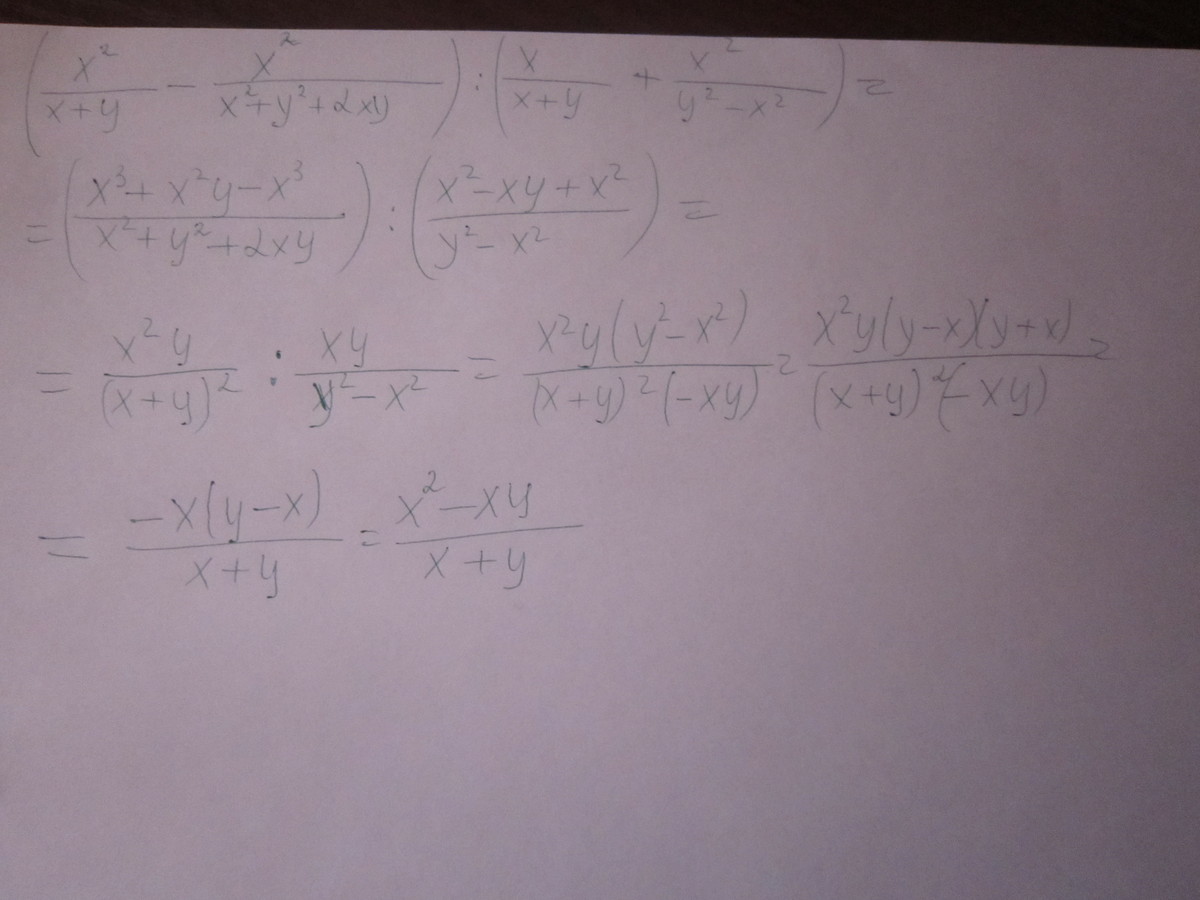 (x²/(x+y) − x²/(x²+y²+2xy)) : (x/(x+y) + x²/(y²−x²)) =
= ((x³+x²y−x³)/(x²+y²+2xy)) : ((x²−xy+x²)/(y²−x²)) =
= x²y/(x+y)² : xy/(y²−x²) = x²y(y²−x²)/((x+y)²(−xy)) = x²y(y−x)(y+x)/((x+y)²(−xy)) =
= −x(y−x)/(x+y) = (x²−xy)/(x+y)